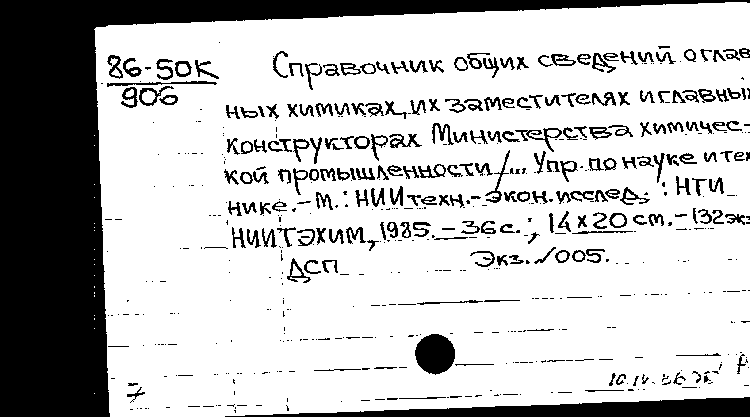 86-50К
906
Справочник общих сведений о глав
ных химиках, их заместителях и главных
конструкторах Министерства химичес-
кой промышленности /... Упр. по науке и тех
нике. - М. : НИИ техн.-экон. исслед. : НТИ
НИИТЭХИМ, 1985. - 36 с. ; 14 x 20 см. - (132 экз
ДСП Экз. №005.
7